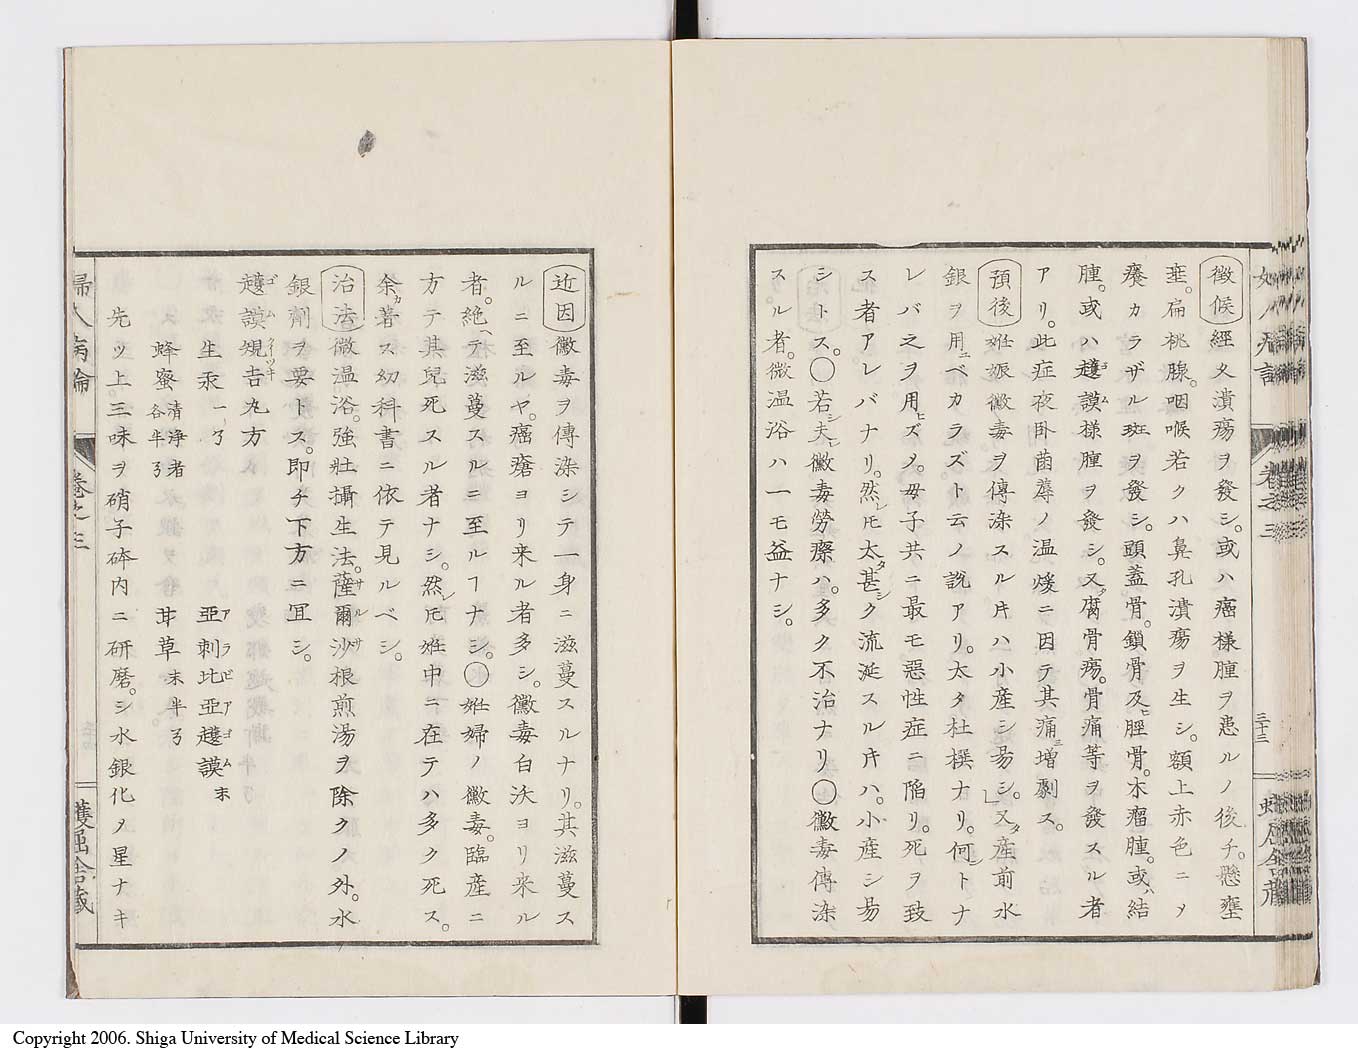 徴候 經久潰瘍ヲ發シ。或ハ癌様腫ヲ患ルノ後チ。懸壅
埀。扁桃腺。咽喉若クハ鼻孔潰瘍ヲ生シ。額上赤色ニノ
癢カラザル斑ヲ發シ。頭蓋骨。鎖骨及ヒ脛骨。木瘤腫。或ハ結
腫。或ハ護謨様腫ヲ發シ。又タ腐骨瘍。骨痛等ヲ發スル者
アリ。此症夜卧茵蓐ノ温煖ニ因テ其痛ミ増劇ス。
預後 姙娠黴毒ヲ傳染スル片ハ小産シ易シ。又タ産前水
銀ヲ用ユベカラズト云ノ説アリ。太タ杜撰ナリ。何シトナ
レバ之ヲ用ヒズノ。母子共ニ最モ惡性症ニ陥リ。死ヲ致
ス者アレバナリ。然レ圧太タ甚シク流涎スル片ハ。小産シ易
シトス。〇若シ夫レ黴毒勞瘵ハ。多ク不治ナリ〇黴毒傳染
スル者。微温浴ハ一モ益ナシ。
三十三
近因 黴毒ヲ傳染シテ一身ニ滋蔓スルナリ。其滋蔓ス
ルニ至ルヤ。癌瘡ヨリ来ル者多シ。黴毒白沃ヨリ来ル
者。絶ヘテ滋蔓スルニ至ルヿナシ。〇姙婦ノ黴毒。臨産ニ
方テ其兒死スル者ナシ。然レ圧姙中ニ在テハ多ク死ス。
余カ著ス幼科書ニ依テ見ルベシ。
治法 微温浴。強壯攝生法。薩爾沙根煎湯ヲ除クノ外。水
銀劑ヲ要トス。即チ下方ニ冝シ。
護謨規吉丸方
生汞 一ヲ 亞刺比亞護謨 末
蜂蜜 清浄者 各半ヲ 甘草 末半ヲ
先ツ上。三味ヲ硝子砵内ニ研磨。シ水銀化ノ星ナキ
婦人病論 卷之三 蠖屈舎藏